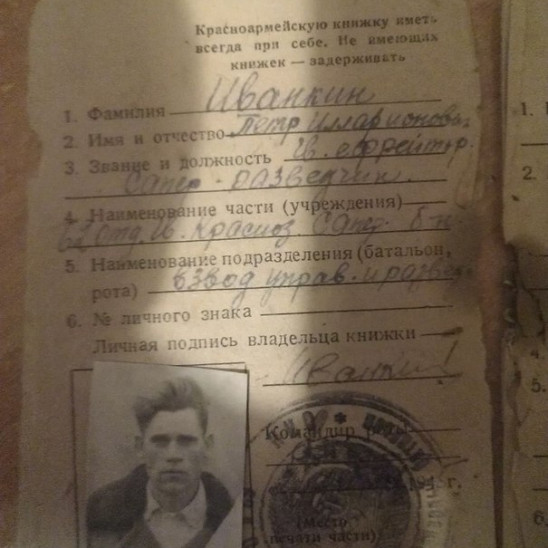 Красноармейскую книжку иметь
всегда при себе. Не имеющих
книжек — задерживать
1. Фамилия Иванкин
2. Имя и отчество Петр Илларионович
3. Звание и должность гв. ефрейтор
Сапер-разведчик
4. Наименование части (учреждения)
62 отд. гв. Сапер. б-н
5. Наименование подразделения (батальон,
рота) взвод управ. и развед.
6. № личного знака
Личная подпись владельца книжки
Иванкин
Командир
194 г.
(Место
печати части)
1.
2.
4.
5.
6.